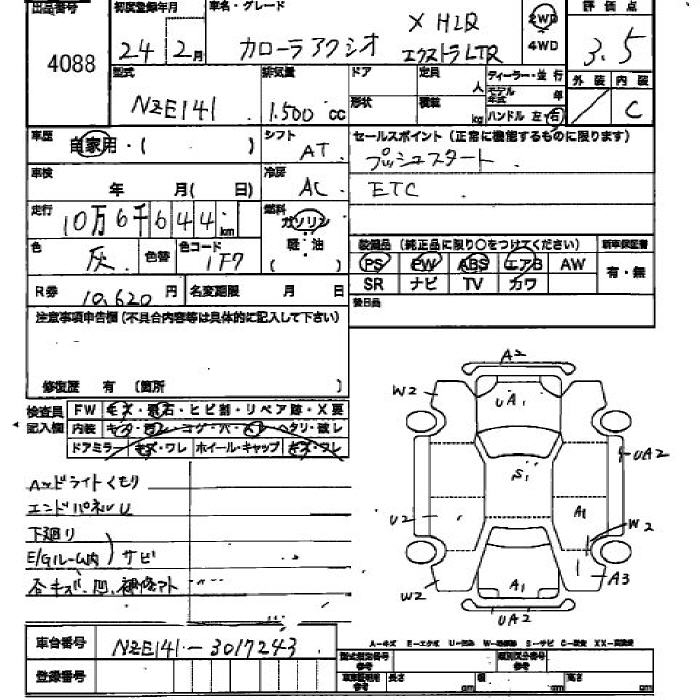 出品番号 初度登録年月 車名・グレード 2WD 評価点
4088 24年 2月 カローラアクシオ X HIDリミテッド
エクストラLTD 4WD 3.5
型式 排気量 ドア 定員 人 ディーラー・並行 外装 内装
NZE141 1.500cc 形状 積載 kg モデル年式 年 C
ハンドル 左・右
車歴 自家用・( ) シフト AT セールスポイント(正常に機能するものに限ります)
プッシュスタート
車検 年 月( 日) 冷房 AC ETC
走行 10万6千644km 燃料 ガソリン
軽・油
( )
装備品(純正品に限り○をつけてください) 新車保証書
色 灰 色替 色コード 1F7 PS PW ABS エアB AW 有・無
SR ナビ TV カワ
R券 10,620円 名変期限 月 日 後日品
注意事項申告欄(不具合内容等は具体的に記入して下さい)
修復歴 有 (箇所 )
検査員 FW キズ・飛石・ヒビ割・リペア跡・X要
記入欄 内装 キズ・コゲ・穴・ヘタリ・破レ
ドアミラー キズ・ワレ ホイール・キャップ キズ・ワレ
ヘッドライトくもり
エンドパネルU
下廻り
E/Gルーム内 サビ
各キズ、凹、補修アト
A2
W2
UA1
UA2
S1
U2
A1
W2
A3
W2
A1
UA2
車台番号 NZE141-3017243
登録番号
A-キズ E-エクボ U-凹み S-サビ
型式指定番号 参考 類別区分番号 参考
長さ cm 幅 cm 高さ cm